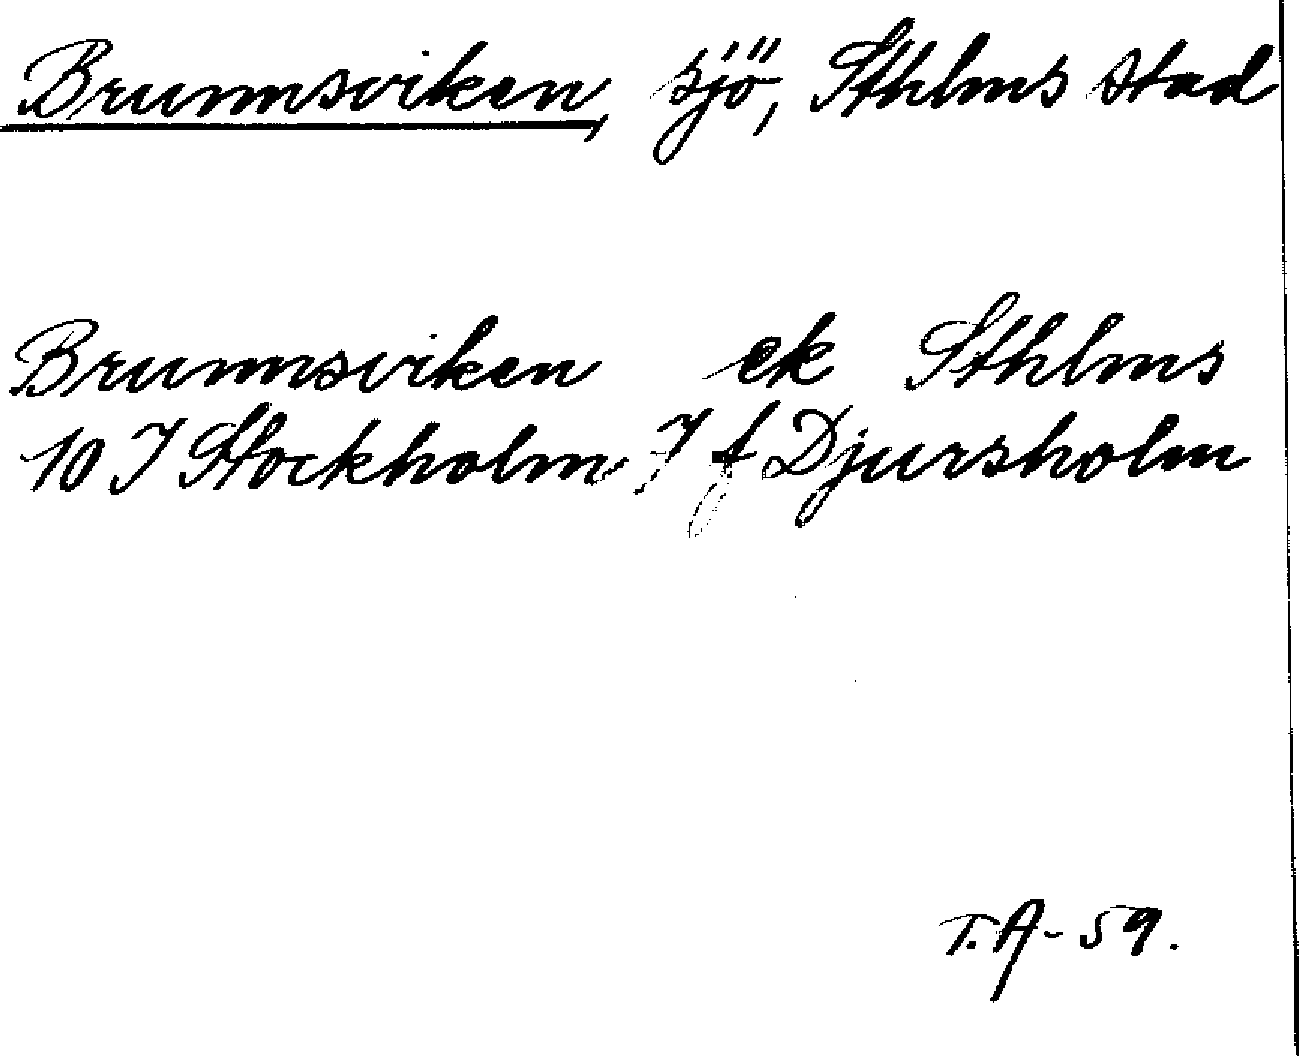 Brunnsviken, sjö, Sthlms stad
Brunnsviken ek Sthlms
10 I Stockholm I f Djursholm
T.A-59.